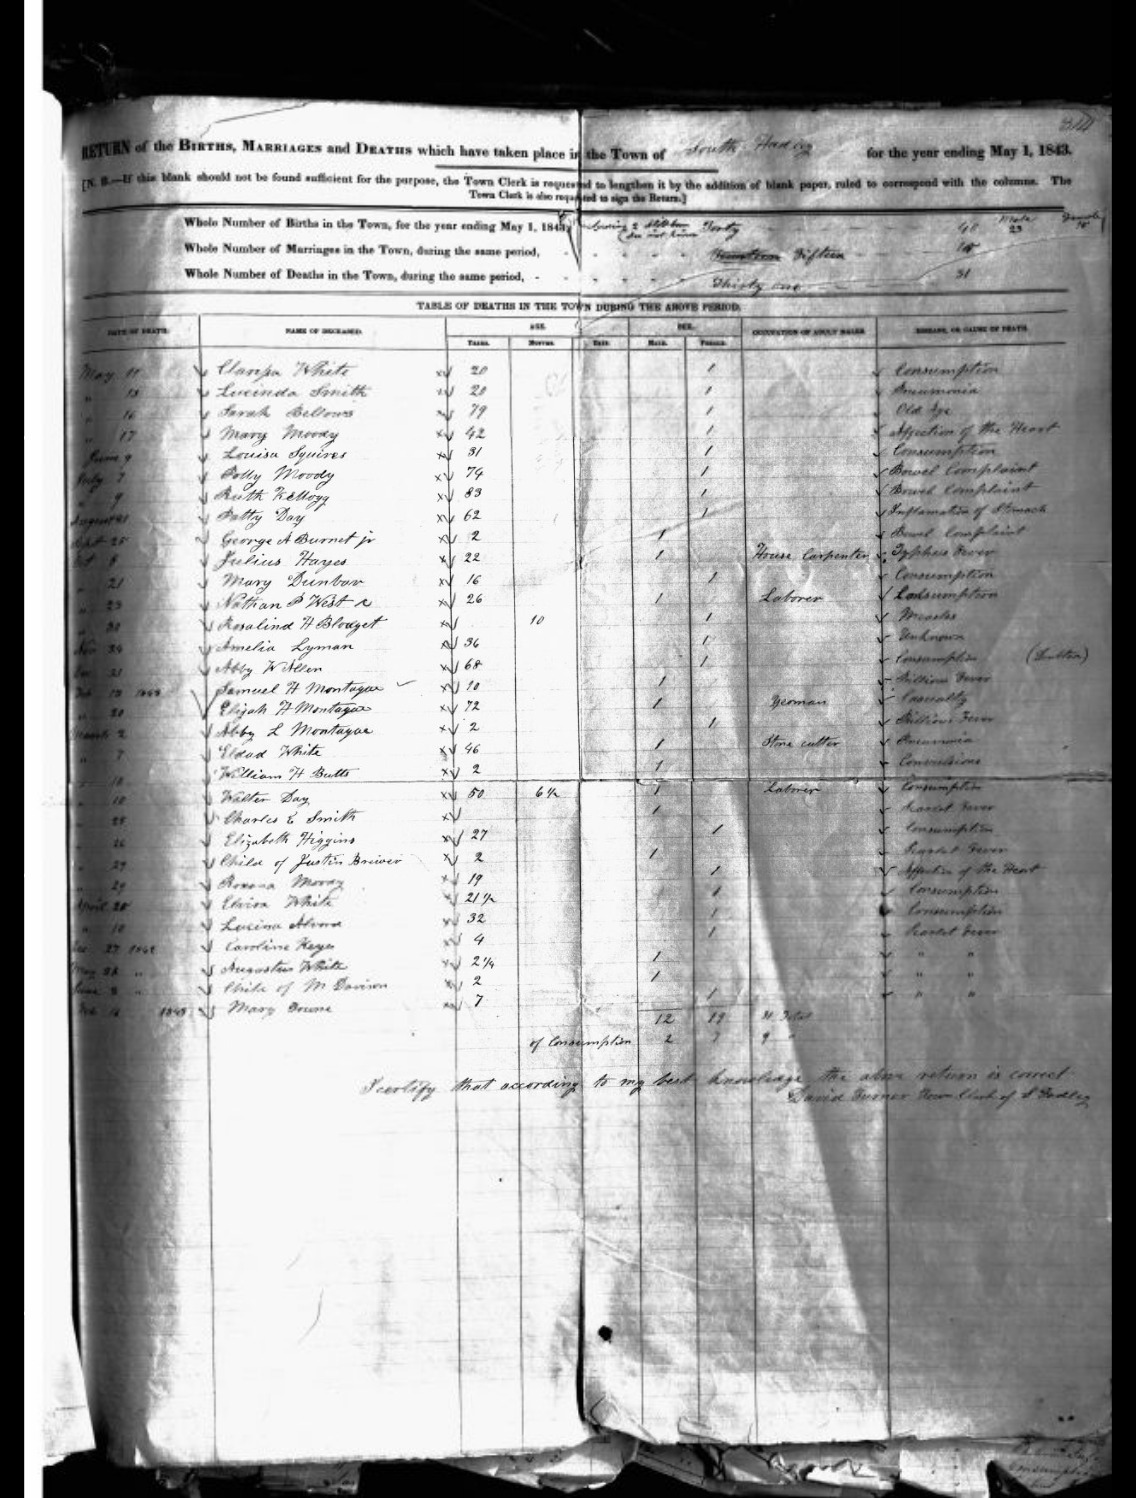 RETURN of the BIRTHS, MARRIAGES and DEATHS which have taken place in the Town of South Hadley for the year ending May 1, 1843.
[N. B.—If this blank should not be found sufficient for the purpose, the Town Clerk is requested to lengthen it by the addition of blank paper, ruled to correspond with the columns. The
Town Clerk is also requested to sign the Return.]
Whole Number of Births in the Town, for the year ending May 1, 1843, Forty 40 Male 23 Female
Whole Number of Marriages in the Town, during the same period, Fifteen 15
Whole Number of Deaths in the Town, during the same period, Thirty one 31
TABLE OF DEATHS IN THE TOWN DURING THE ABOVE PERIOD.
DATE OF DEATH. NAME OF DECEASED. AGE. SEX. OCCUPATION OF ADULT MALES. DISEASE, OR CAUSE OF DEATH.
YEARS. MONTHS. DAYS. MALE. FEMALE.
May 11 Clarissa White 20 1 Consumption
" 15 Lucinda Smith 20 1 Pneumonia
" 16 Sarah Bellows 79 1 Old Age
" 17 Mary Moody 42 1 Affection of the Heart
June 9 Louisa Squires 31 1 Consumption
July 7 Polly Moody 74 1 Bowel Complaint
" 9 Ruth Kellogg 83 1 Bowel Complaint
August Patty Day 62 1 Inflamation of Stomach
Sept 25 George A Burnet jr 2 1 Bowel Complaint
Oct 8 Julius Hayes 22 1 House Carpenter Typhus Fever
" 21 Mary Dunbar 16 1 Consumption
" 23 Nathan P West 26 1 Laborer Consumption
" 30 Rosalind H Blodget 10 1 Measles
Nov 24 Amelia Lyman 36 1 Unknown
Dec 21 Abby W Allen 68 1 Consumption
Feb 13 1843 Samuel H Montague 10 1 Billious Fever
" 20 Elijah H Montague 72 1 Yeoman Casualty
March 2 Abby L Montague 2 1 Billious Fever
" 7 Eldad White 46 1 Stone cutter Pneumonia
" 10 William H Butts 2 1 Convulsions
" 10 Walter Day 50 6½ 1 Laborer Consumption
" 25 Charles E Smith 1 Scarlet Fever
" 26 Elizabeth Higgins 27 1 Consumption
" 29 Child of Justin 2 1 Scarlet Fever
" 29 Roxana Moody 19 1 Affection of the Heart
April 20 Elvira White 21½ 1 Consumption
" 10 Lucina Alvord 32 1 Consumption
Dec 27 1842 Caroline Keyes 4 1 Scarlet Fever
May 28 " Augustus White 2¼ 1 " "
June 3 " Child of M Davison 2 1 " "
1843 Mary 7 1 " "
12 19 31 Total
of Consumption 2 7 9 "
I certify that according to my best knowledge the above return is correct
David Turner Town Clerk of S Hadley